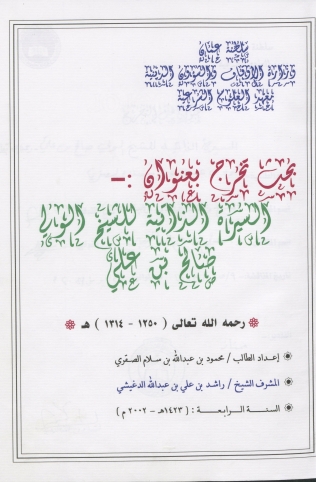 سلطنة عمان
وزارة الأوقاف والشؤون الدينية
معهد العلوم الشرعية
بحث تخرج بعنوان :–
السيرة الذاتية للشيخ
صالح بن علي
رحمه الله تعالى ( ١٢٥٠ - ١٣١٤ ) هـ
إعداد الطالب / محمود بن عبدالله بن سلام الصقري
المشرف الشيخ / راشد بن علي بن عبدالله الدغيشي
السنة الرابعة : ( ١٤٢٣هـ - ٢٠٠٢ م )